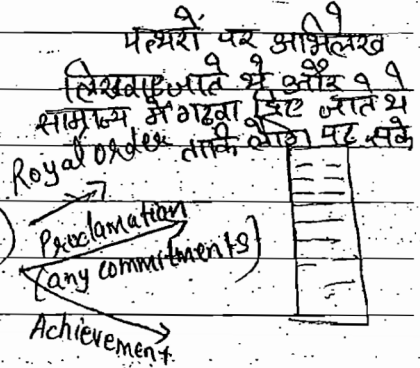 पत्थरों पर अभिलेख
लिखवाए जाते थे और
साम्राज्य में गढवा दिए जाते थे
ताकि लोग पढ़ सके
Royal order
Proclamation
(any commitments)
Achievement